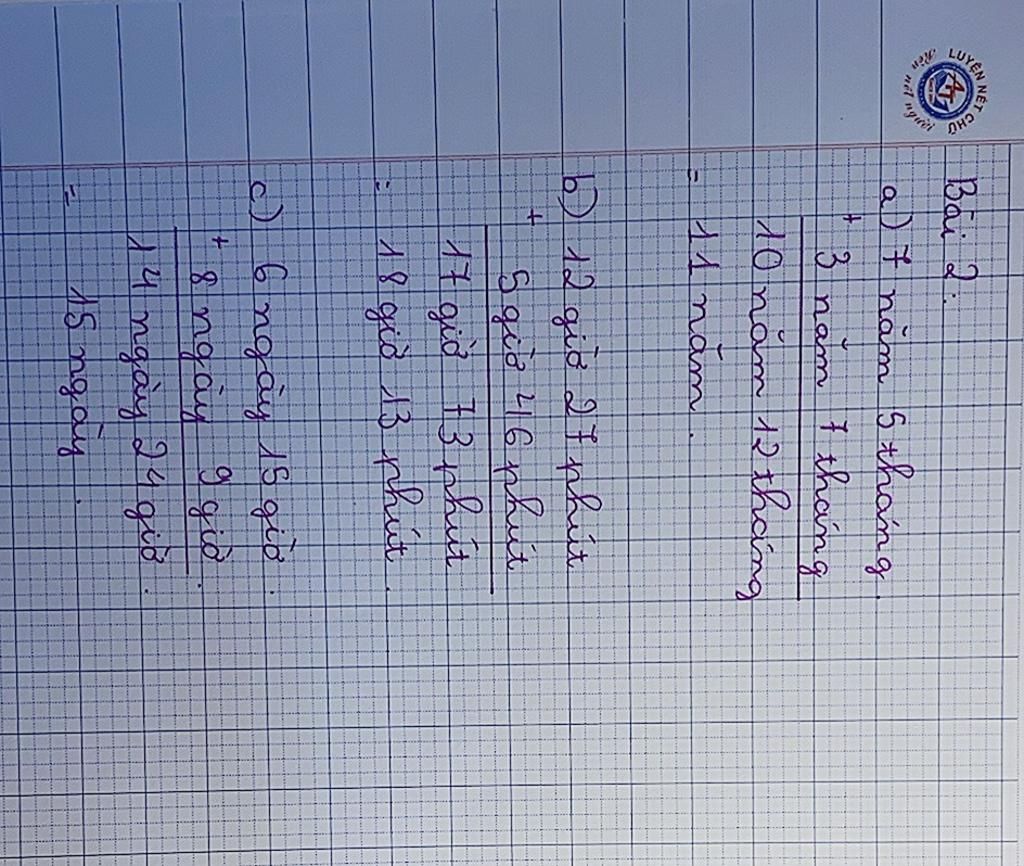 LUYỆN NÉT CHỮ
Rèn nết người
Bài 2:
a) 7 năm 5 tháng.
+ 3 năm 7 tháng
10 năm 12 tháng
= 11 năm.
b) 12 giờ 27 phút
+ 5 giờ 46 phút
17 giờ 73 phút
= 18 giờ 13 phút.
c) 6 ngày 15 giờ.
+ 8 ngày 9 giờ.
14 ngày 24 giờ.
= 15 ngày.